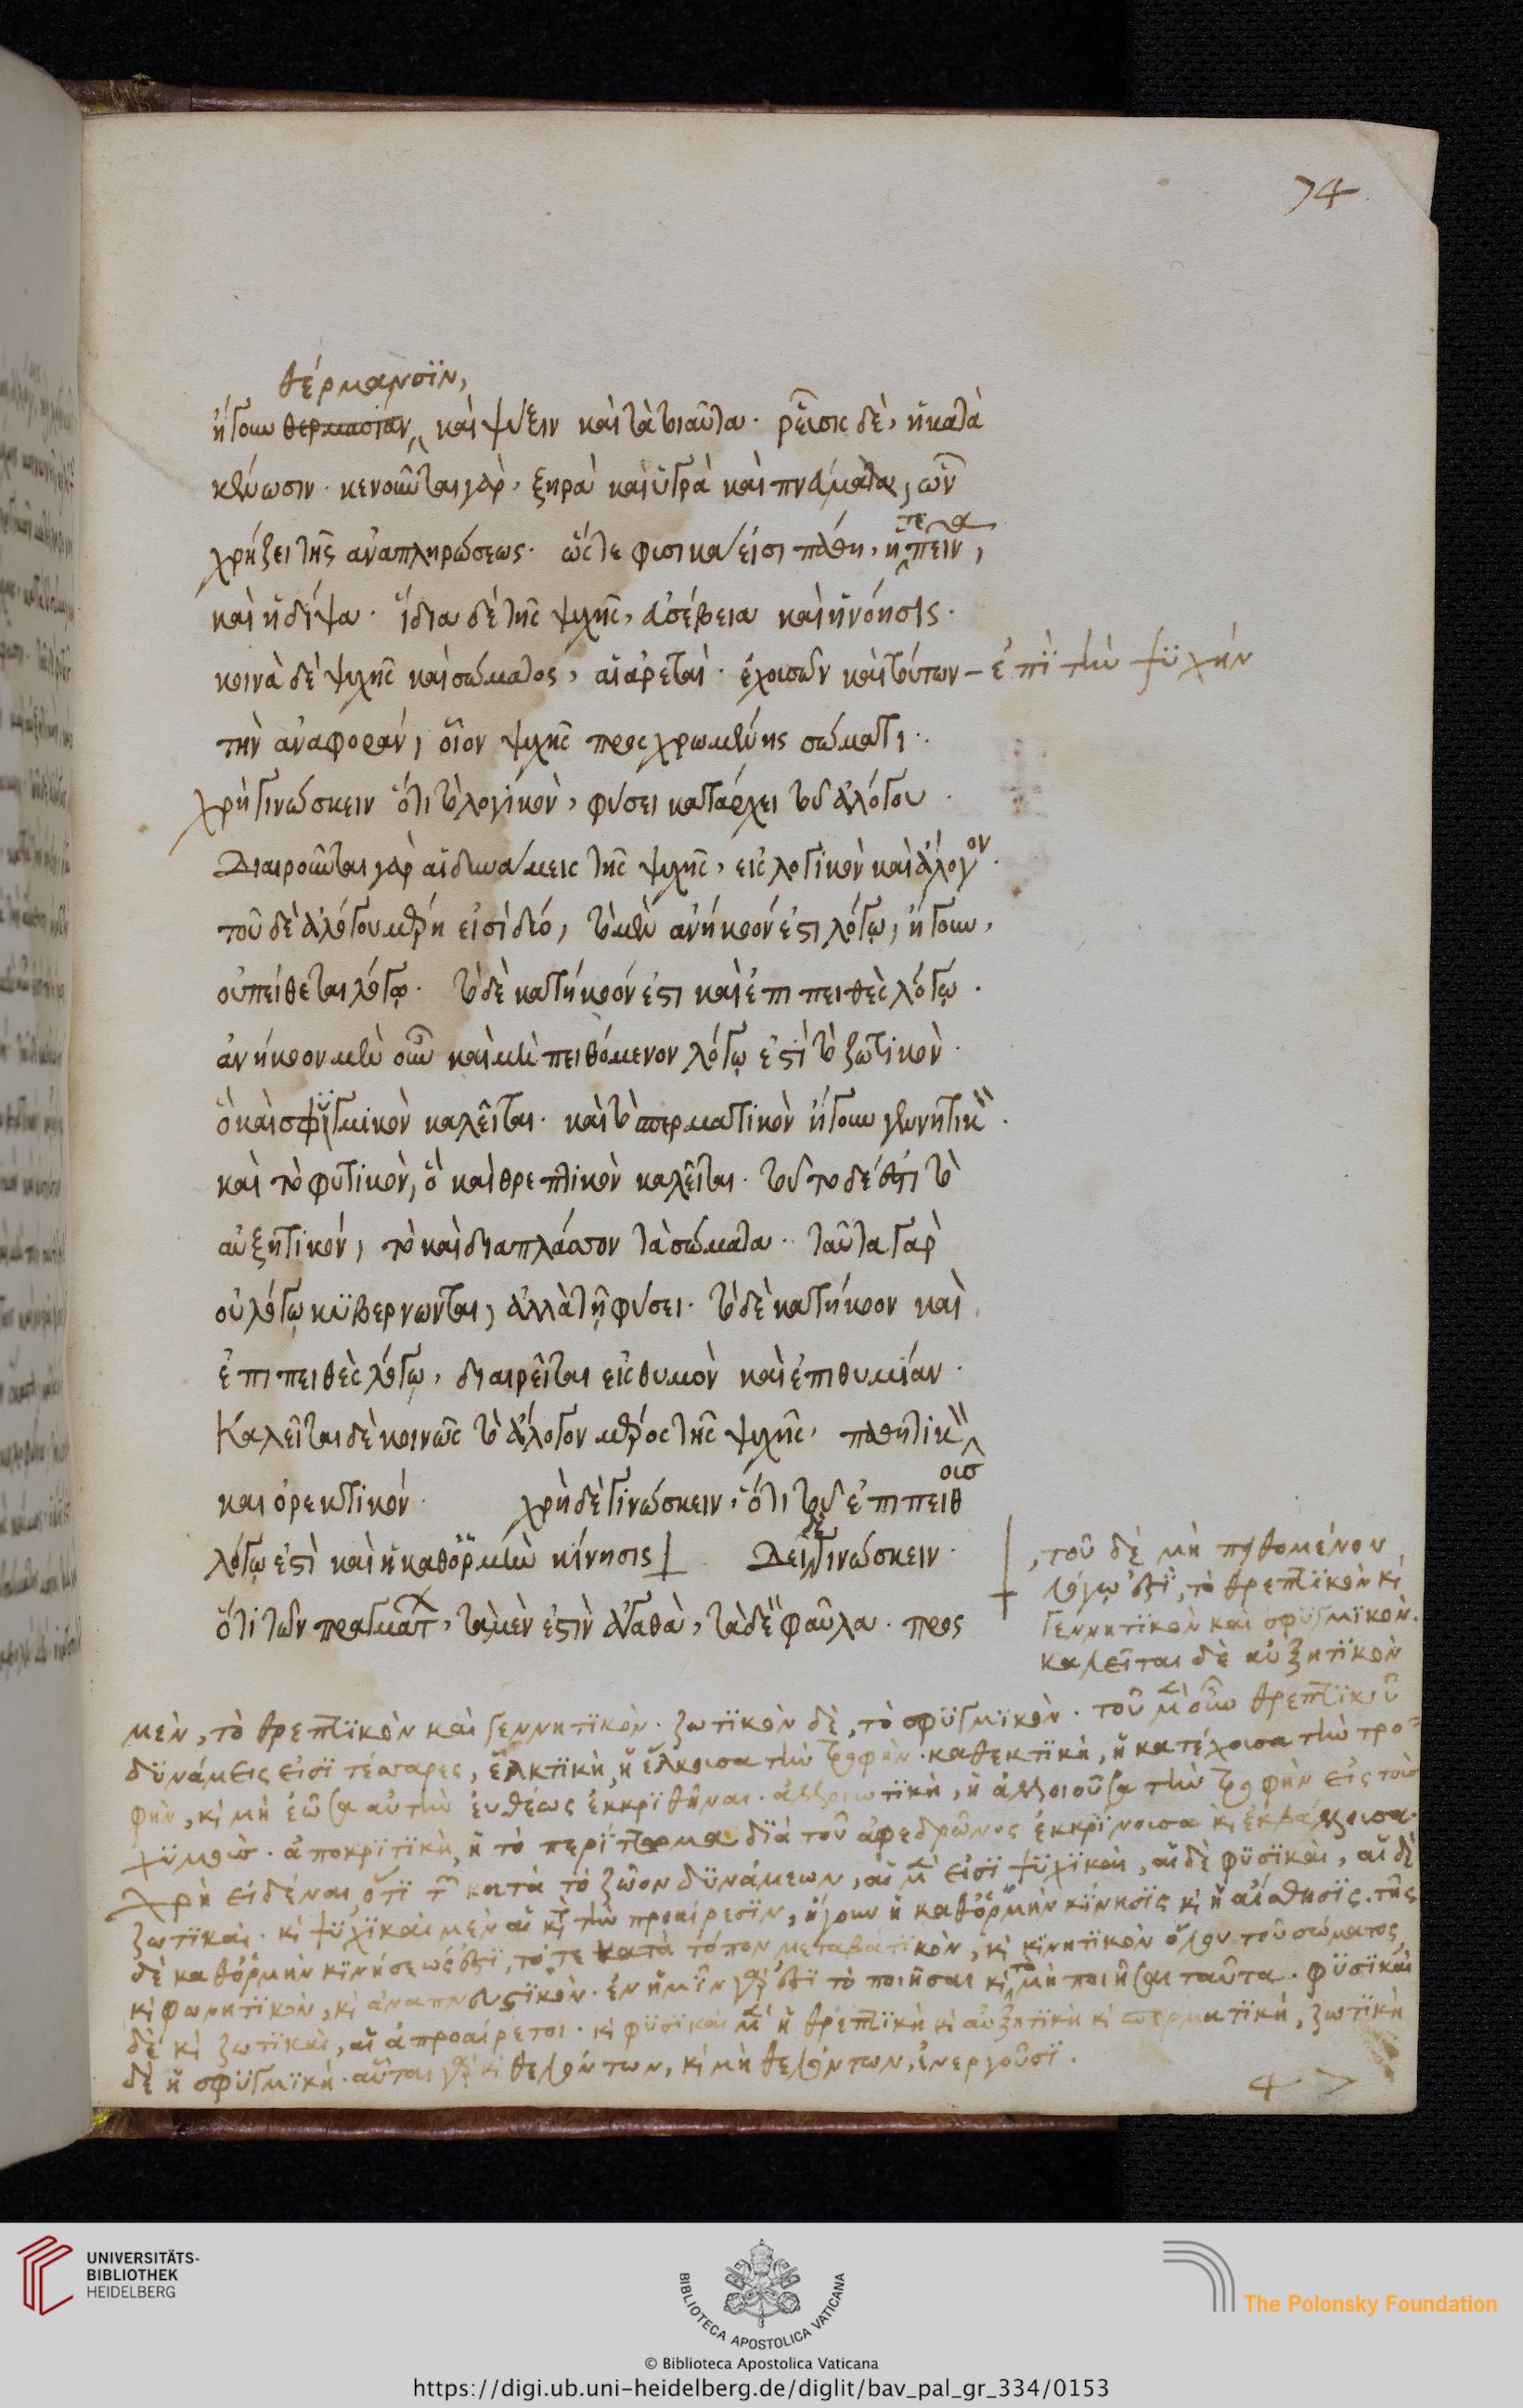 74
θέρμανσϊν,
ἤγουν θερμασίαν καὶ ψύξιν καὶ τὰ τοιαῦτα· ῥεῦσις δὲ, ἡ κατὰ
κένωσιν· κενοῦνται γὰρ, ξηρὰ καὶ ὑγρὰ καὶ πνεύματα, ὧν
χρήζει τῆς ἀναπληρώσεως· ὥστε φυσικά εἰσι πάθη, ἥ τε πεῖνα,
καὶ ἡ δίψα· ἴδια δὲ τῆς ψυχῆς, εὐσέβεια καὶ ἡ νόησις·
κοινὰ δὲ ψυχῆς καὶ σώματος, αἱ ἀρεταί· ἐχουσῶν καὶ τούτων – ἐπϊ τὴν ψϋχήν
τὴν ἀναφορὰν, οἷον ψυχῆς προσχρωμένης σώματι·
χρὴ γινώσκειν ὅτι τὸ λογικὸν, φύσει κατάρχει τοῦ ἀλόγου·
Διαιροῦνται γὰρ αἱ δυνάμεις τῆς ψυχῆς, εἰς λογικὸν καὶ ἄλογον·
τοῦ δὲ ἀλόγου μέρη εἰσὶ δύο, τὸ μὲν ἀνήκοόν ἐστι λόγῳ, ἤγουν,
οὐ πείθεται λόγῳ· τὸ δὲ κατήκοόν ἐστι καὶ ἐπιπειθὲς λόγῳ·
ἀνήκοον μὲν οὖν καὶ μὴ πειθόμενον λόγῳ ἐστὶ τὸ ζωτικὸν·
ὃ καὶ σφϋγμικὸν καλεῖται· καὶ τὸ σπερματικὸν ἤγουν γεννητικὸν·
καὶ τὸ φυτικὸν, ὃ καὶ θρεπτικὸν καλεῖται· τούτου δέ ἐστι τὸ
αὐξητικόν, τὸ καὶ διαπλάσσον τὰ σώματα· ταῦτα γὰρ
οὐ λόγῳ κϋβερνῶνται, ἀλλὰ τῇ φύσει· τὸ δὲ κατήκοον καὶ
ἐπιπειθὲς λόγῳ, διαιρεῖται εἰς θυμὸν καὶ ἐπιθυμίαν·
Καλεῖται δὲ κοινῶς τὸ ἄλογον μέρος τῆς ψυχῆς, παθητικὸν
καὶ ὀρεκτικόν· χρὴ δὲ γινώσκειν, ὅτι τοῦ ἐπιπειθοῦς
λόγῳ ἐστὶ καὶ ἡ καθ᾽ ὁρμὴν κίνησις Δεῖ δὲ γινώσκειν·
ὅτι τῶν πραγμάτων, τὰ μέν ἐστιν ἀγαθὰ, τὰ δὲ φαῦλα· προσ
, τοῦ δὲ μὴ πηθομένου,
λόγῳ ἐστὶ, τὸ θρεπτϊκὸν κὶ
γεννητϊκὸν καὶ σφϋγμϊκὸν.
καλεῖται δὲ αὐξητϊκὸν
μὲν, τὸ θρεπτϊκὸν καὶ γεννητϊκὸν· ζωτϊκὸν δὲ, τὸ σφϋγμϊκὸν· τοῦ μὲν οὖν θρεπτϊκοῦ
δϋνάμεις εἰσϊ τέσσαρες, ἑλκτϊκὴ, ἡ ἕλκουσα τὴν τροφὴν· καθεκτϊκὴ, ἡ κατέχουσα τὴν τρο-
φὴν, κὶ μὴ ἐῶσα αὐτὴν εὐθέως ἐκκρϊθῆναι· ἀλλοιωτϊκὴ, ἡ ἀλλοιοῦσα τὴν τροφὴν εἰς τοὺς
χϋμοὺς· ἀποκρϊτϊκὴ, ἡ τὸ περίττωμα δϊὰ τοῦ ἀφεδρῶνος ἐκκρίνουσα κὶ ἐκβάλλουσα·
χρὴ εἰδέναι, ὅτϊ τῶν κατὰ τὸ ζῶον δϋνάμεων, αἱ μὲν εἰσϊ ψϋχϊκαὶ, αἱ δὲ φϋσϊκαὶ, αἱ δὲ
ζωτϊκαί· κὶ ψϋχϊκαὶ μὲν αἱ κατὰ τὴν προαίρεσϊν, ἤγουν ἡ καθ᾽ ὁρμὴν κίνησϊς κὶ ἡ αἴσθησϊς· τῆς
δὲ καθ᾽ ὁρμὴν κϊνήσεώς ἐστϊ, τό τε κατὰ τόπον μεταβατϊκὸν, κὶ κϊνητϊκὸν ὅλου τοῦ σώματος,
κὶ φωνητϊκὸν, κὶ ἀναπνευστϊκὸν· ἐν ἡμῖν γάρ ἐστϊ τὸ ποιῆσαι κὶ τὸ μὴ ποιῆσαι ταῦτα· φϋσϊκαὶ
δὲ κὶ ζωτϊκαὶ, αἱ ἀπροαίρετοι· κὶ φϋσϊκαὶ μὲν ἡ θρεπτϊκὴ κὶ αὐξητϊκὴ κὶ σπερματϊκὴ, ζωτϊκὴ
δὲ ἡ σφϋγμϊκὴ· αὗται γὰρ κὶ θελόντων, κὶ μὴ θελόντων, ἐνεργοῦσϊ.
UNIVERSITÄTS-
BIBLIOTHEK
HEIDELBERG
BIBLIOTECA APOSTOLICA VATICANA
The Polonsky Foundation
© Biblioteca Apostolica Vaticana
https://digi.ub.uni-heidelberg.de/diglit/bav_pal_gr_334/0153